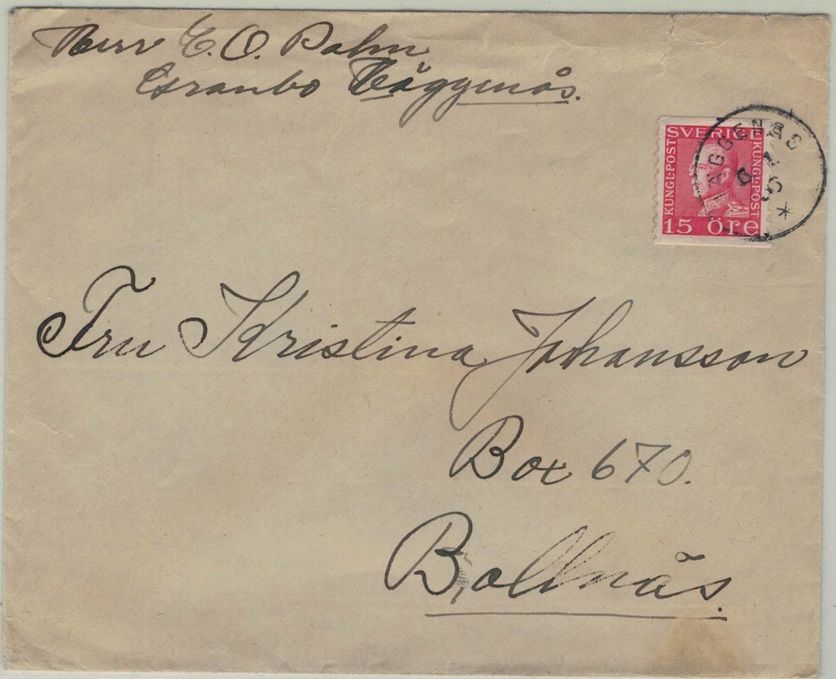 Herr E. O. Palm
Granbo Häggenås.
SVERIGE
KUNGL·POST
KUNGL·POST
15 öre
HÄGGENÅS
6 1
*
Fru Kristina Johansson
Box 670.
Bollnäs.